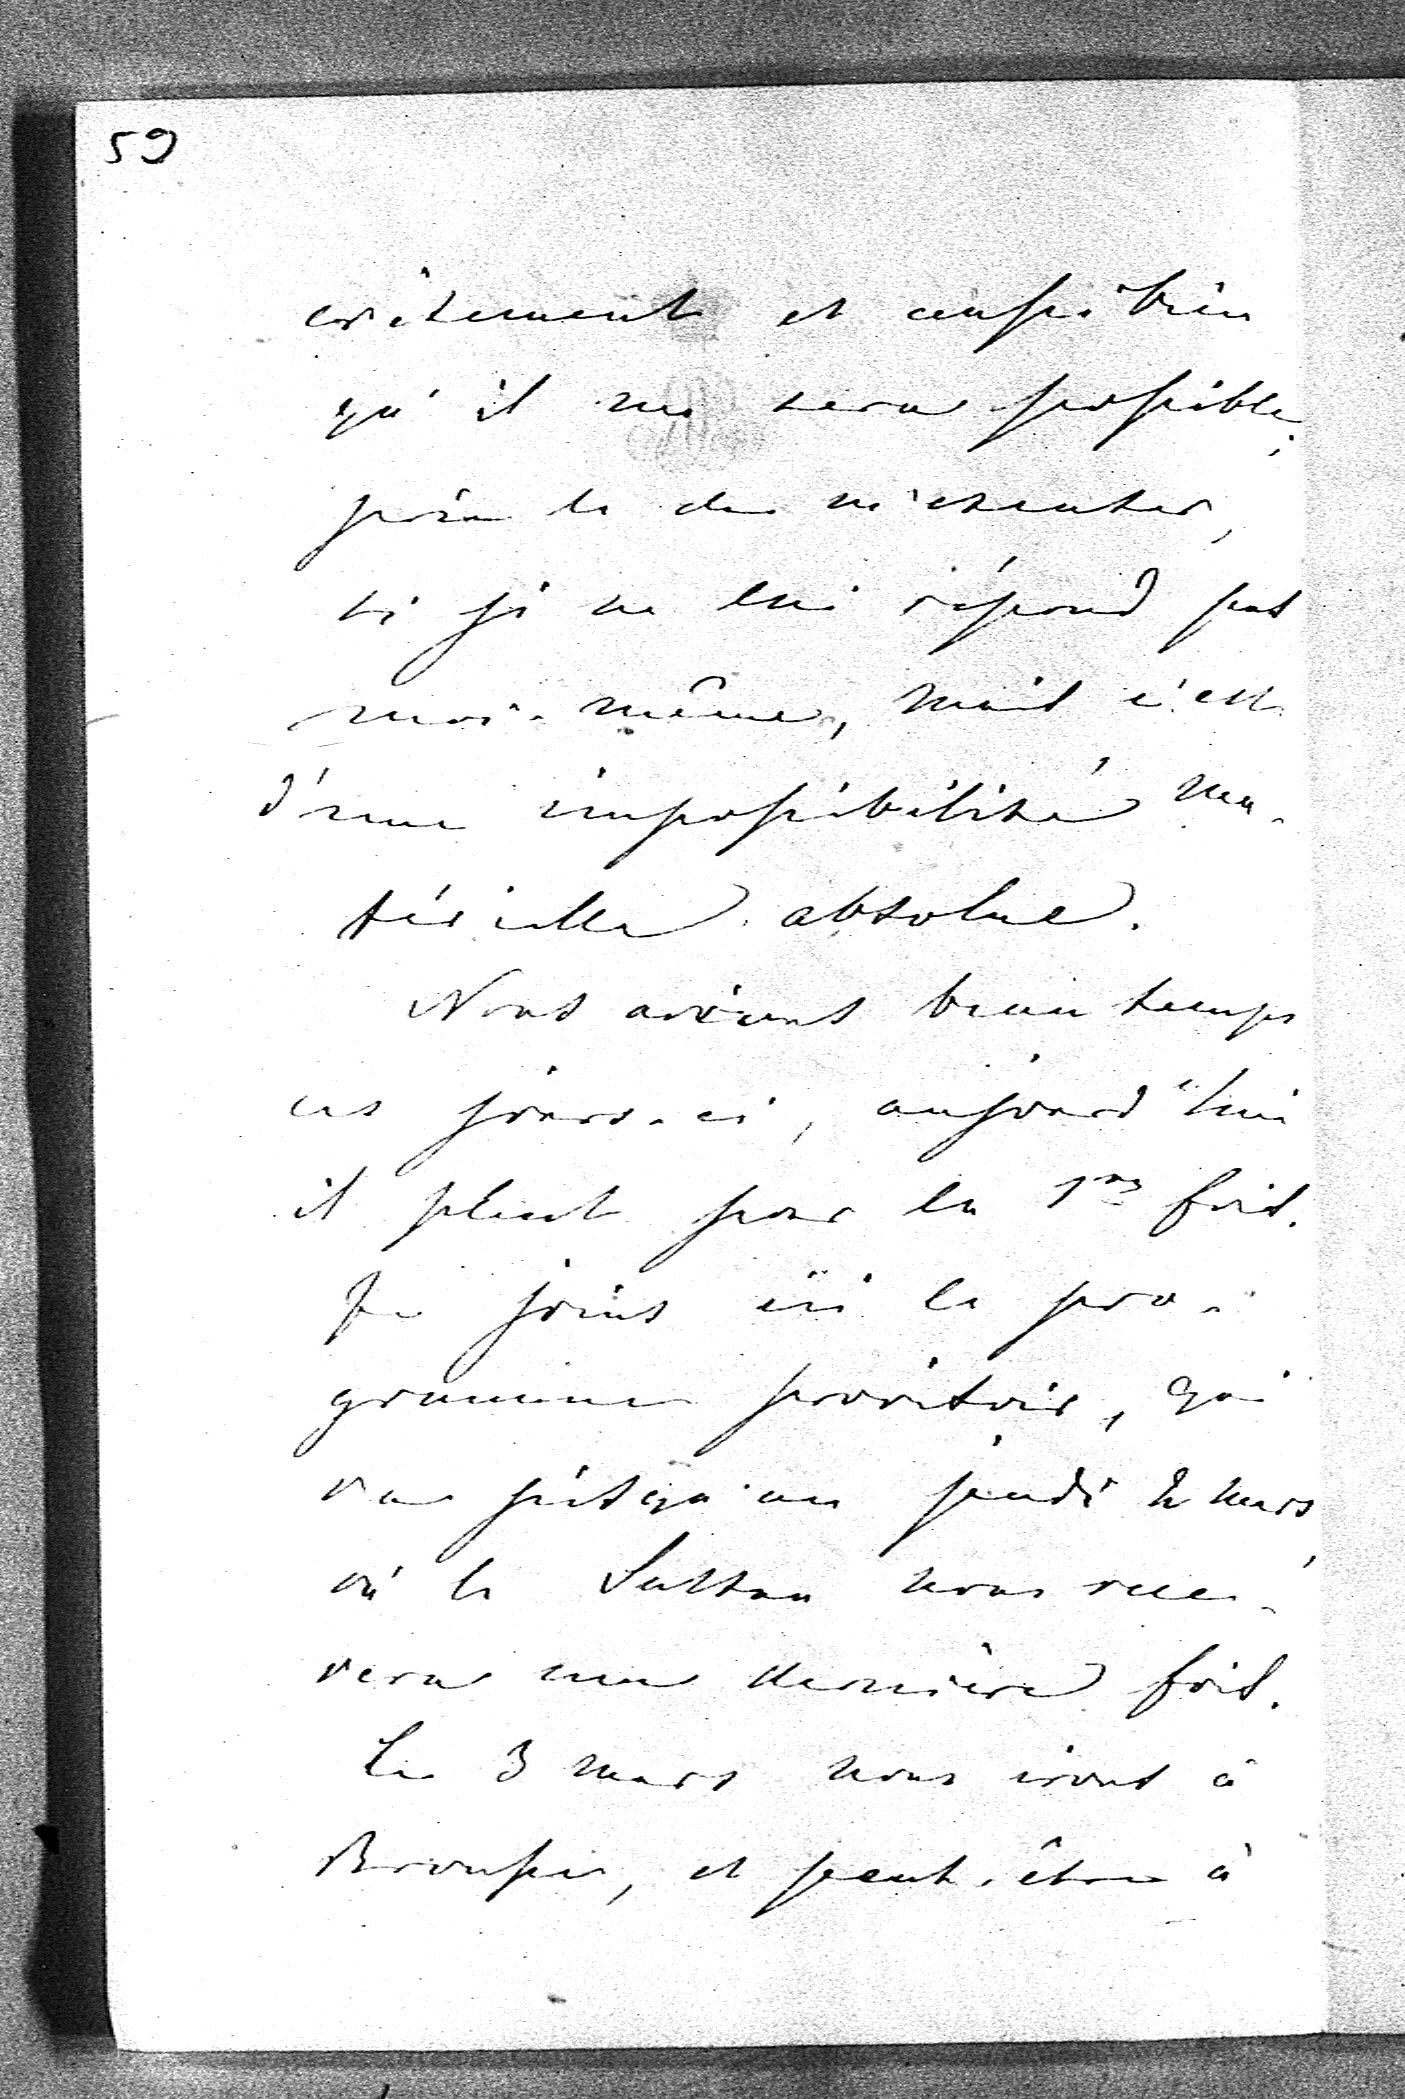 59
crètement et aussi bien
qu'il me sera possible;
prie le de m'excuser,
si je ne lui répond pas
moi-même, mais c'est
d'une impossibilité ma-
térielle absolue.
Nous avions beau temps
ces jours-ci, aujourd'hui
il pleut pour la 1re fois.
Je joins ici le pro-
gramme provisoir, qui
va jusqu'au jeudi 2 mars,
où le Sultan nous rece-
vera une dernière fois.
Le 3 mars nous irons à
Brousse, et peut-être à